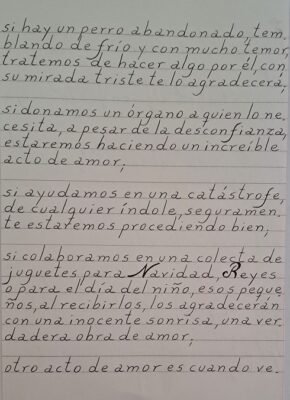 si hay un perro abandonado, tem.
blando de frío y con mucho temor,
tratemos de hacer algo por él, con
su mirada triste te lo agradecerá;
si donamos un órgano a quien lo ne.
cesita, a pesar de la desconfianza,
estaremos haciendo un increíble
acto de amor;
si ayudamos en una catástrofe,
de cualquier índole, seguramen.
te estaremos procediendo bien;
si colaboramos en una colecta de
juguetes para Navidad, Reyes
o para el día del niño, esos peque.
ños, al recibirlos, los agradecerán
con una inocente sonrisa, una ver.
dadera obra de amor;
otro acto de amor es cuando ve.